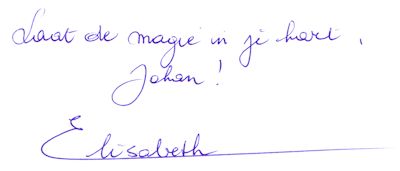 Laat de magie in je hart,
Johan!
Elisabeth